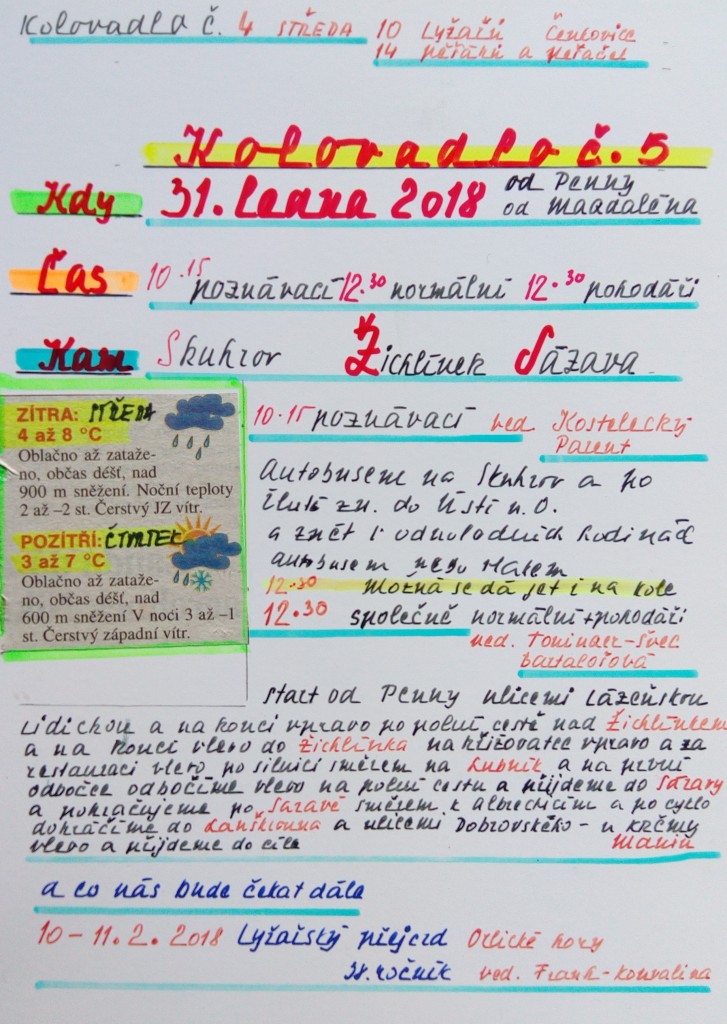 Kolovadla č. 4 STŘEDA 10 Lyžaři Čenkovice
14 pěťáků a peťaček
Kolovadlo č. 5
Kdy 31. ledna 2018 od Penny
od Magdaléna
Čas 10.15 poznávací 12.30 normální 12.30 pohodáři
Kam Skuhrov Žichlínek Sázava
ZÍTRA: STŘEDA
4 až 8 °C
Oblačno až zataže-
no, občas déšť, nad
900 m sněžení. Noční teploty
2 až –2 st. Čerstvý JZ vítr.
POZÍTŘÍ: ČTVRTEK
3 až 7 °C
Oblačno až zataže-
no, občas déšť, nad
600 m sněžení V noci 3 až –1
st. Čerstvý západní vítr.
10.15 poznávací ved. Kostelecký
Parent
Autobusem na Skuhrov a po
žluté zn. do Ústí n. O.
a zpět v odpoledních hodinách
autobusem nebo vlakem
12.30 Možná se dá jet i na kole
12.30 společně normální + pohodáři
ved. Švec
start od Penny ulicemi Lázeňskou
Lidickou a na konci vpravo po polní cestě nad Žichlínkem
a na konci vlevo do Žichlínka na křižovatce vpravo a za
restaurací vlevo po silnici směrem na Lubník a na první
odbočce odbočíme vlevo na polní cestu a přijdeme do Sázavy
a pokračujeme po Sázavě směrem k Albrechticím a po cyklo
dokráčíme do Lanškrouna a ulicemi Dobrovského - u krčmy
vlevo a přijdeme do cíle Mania
a co nás bude čekat dále
10 – 11. 2. 2018 Lyžařský přejezd Orlické hory
38. ročník ved. Frank - Konvalina